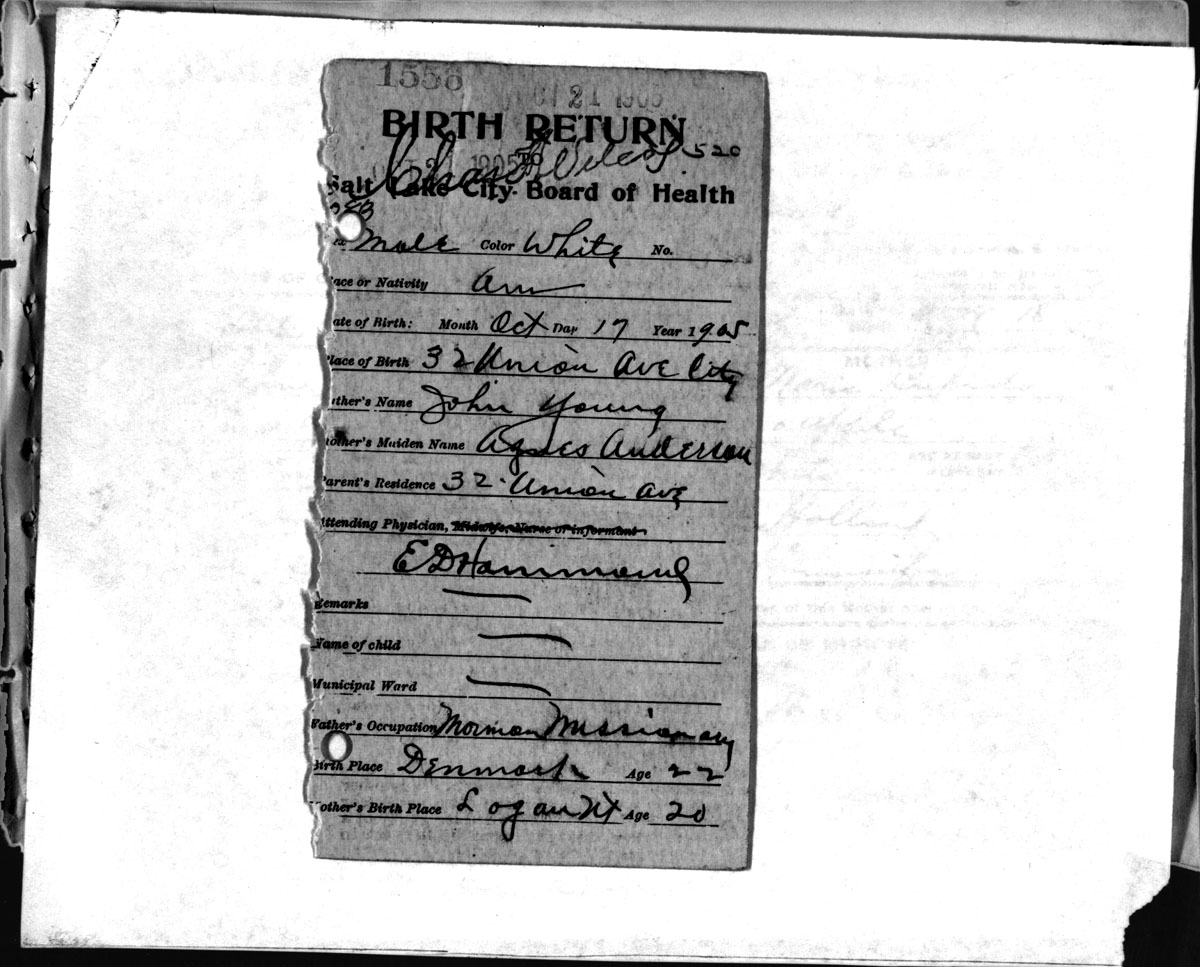 1556
21 1905
BIRTH RETURN
520
21 1905 TO
Salt Lake City Board of Health
Male Color White No.
ace or Nativity Am
ate of Birth: Month Oct Day 17 Year 1905
lace of Birth 32 Union Ave City
ther's Name John Young
other's Maiden Name Agnes Anderson
arent's Residence 32 Union Ave
Attending Physician, Midwife, Nurse or informant
E D Hammond
Remarks
Name of child
Municipal Ward
Father's Occupation Mormon Missionary
Birth Place Denmark Age 22
other's Birth Place Logan Ut Age 20